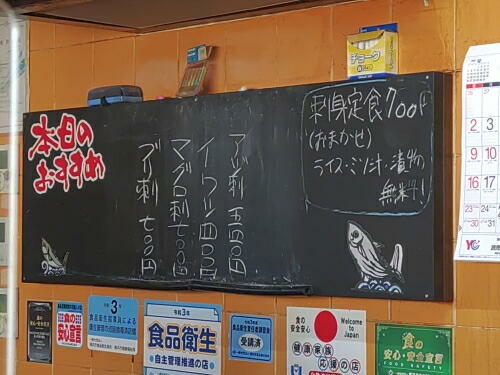 本日の
おすすめ
刺身定食700円
(おまかせ)
ライス・ミソ汁・漬物
無料!
アジ刺 五五〇円
イワシ 四〇〇円
マグロ刺 七〇〇円
ブリ刺 七〇〇円
チョーク
令和3年
令和3年
食品衛生
自主管理推進の店
受講済
食の
安全安心
Welcome to
Japan
健康家族
応援の店
食の
安心・安全宣言
FOOD SAFETY
2 3
9 10
16 17
23 24
YC